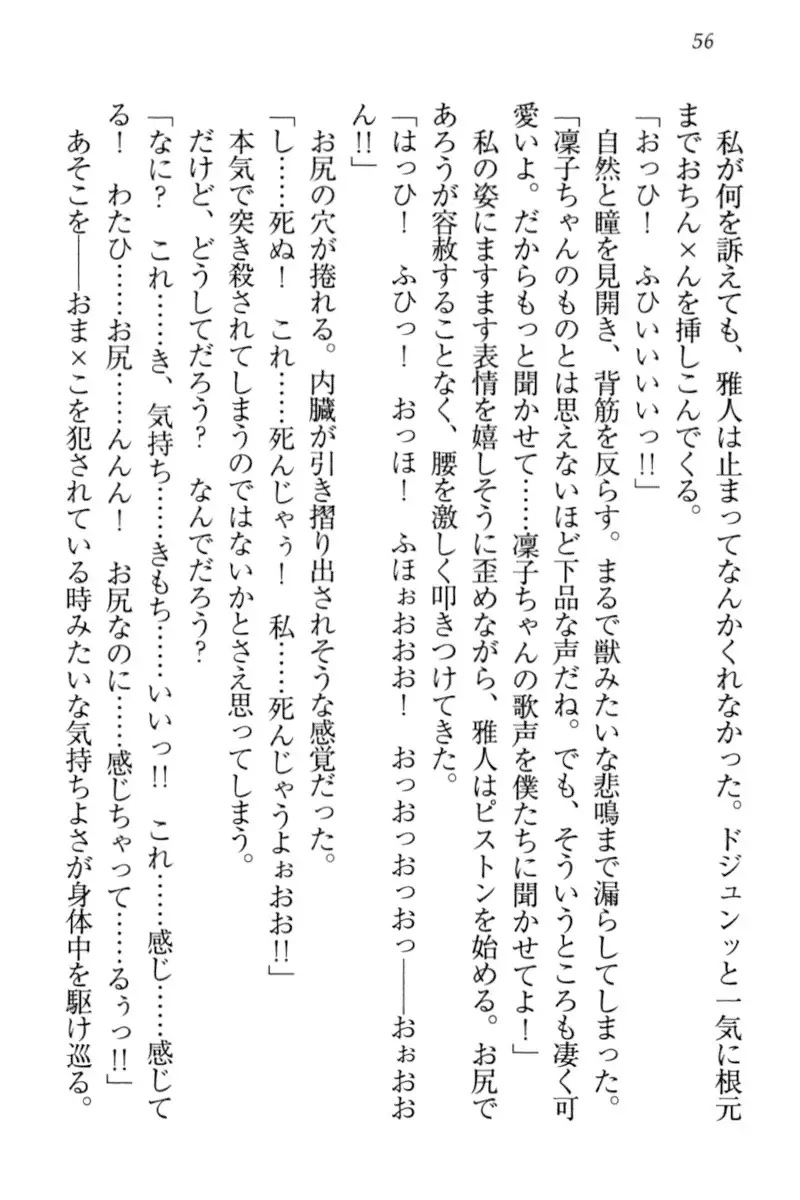 56
私が何を訴えても、雅人は止まってなんかくれなかった。ドジュンッと一気に根元
までおちん×んを挿しこんでくる。
「おっひ！　ふひいいいいっ!!」
自然と瞳を見開き、背筋を反らす。まるで獣みたいな悲鳴まで漏らしてしまった。
「凜子ちゃんのものとは思えないほど下品な声だね。でも、そういうところも凄く可
愛いよ。だからもっと聞かせて……凜子ちゃんの歌声を僕たちに聞かせてよ！」
私の姿にますます表情を嬉しそうに歪めながら、雅人はピストンを始める。お尻で
あろうが容赦することなく、腰を激しく叩きつけてきた。
「はっひ！　ふひっ！　おっほ！　ふほぉおおお！　おっおっおっおっ――おぉおお
ん!!」
お尻の穴が捲れる。内臓が引き摺り出されそうな感覚だった。
「し……死ぬ！　これ……死んじゃぅ！　私……死んじゃうよぉおお!!」
本気で突き殺されてしまうのではないかとさえ思ってしまう。
だけど、どうしてだろう？　なんでだろう？
「なに？　これ……き、気持ち……きもち……いいっ!!　これ……感じ……感じて
る！　わたひ……お尻……んんん！　お尻なのに……感じちゃって……るぅっ!!」
あそこを――おま×こを犯されている時みたいな気持ちよさが身体中を駆け巡る。